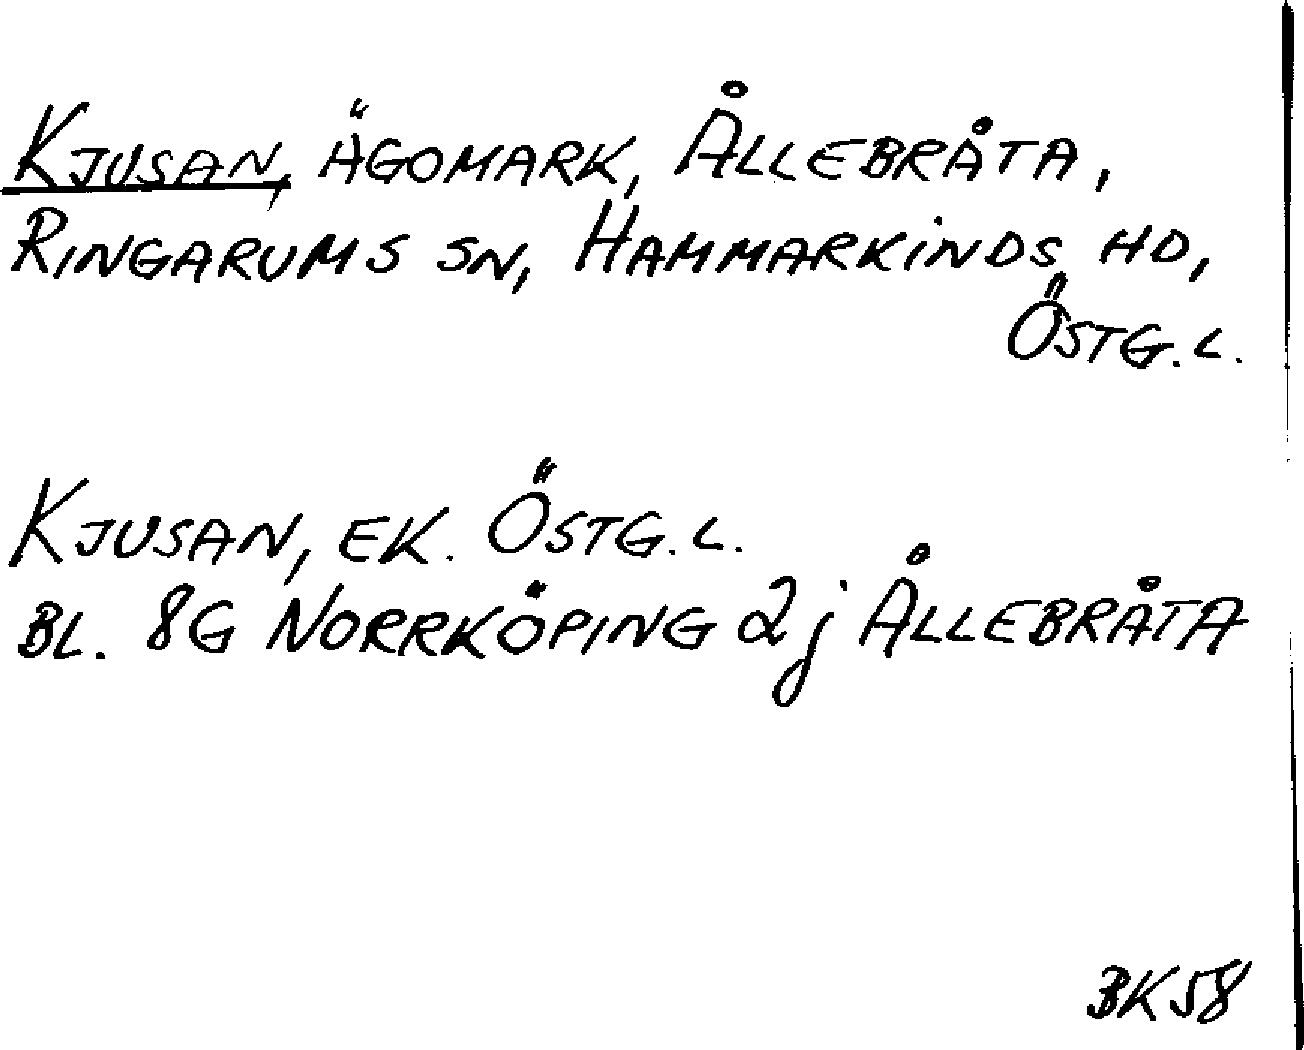 Kjusan, ägomark, Ållebråta,
Ringarums sn, Hammarkinds hd,
Östg.l.
Kjusan, ek. Östg.l.
bl. 8G Norrköping 2j Ållebråta
BK58